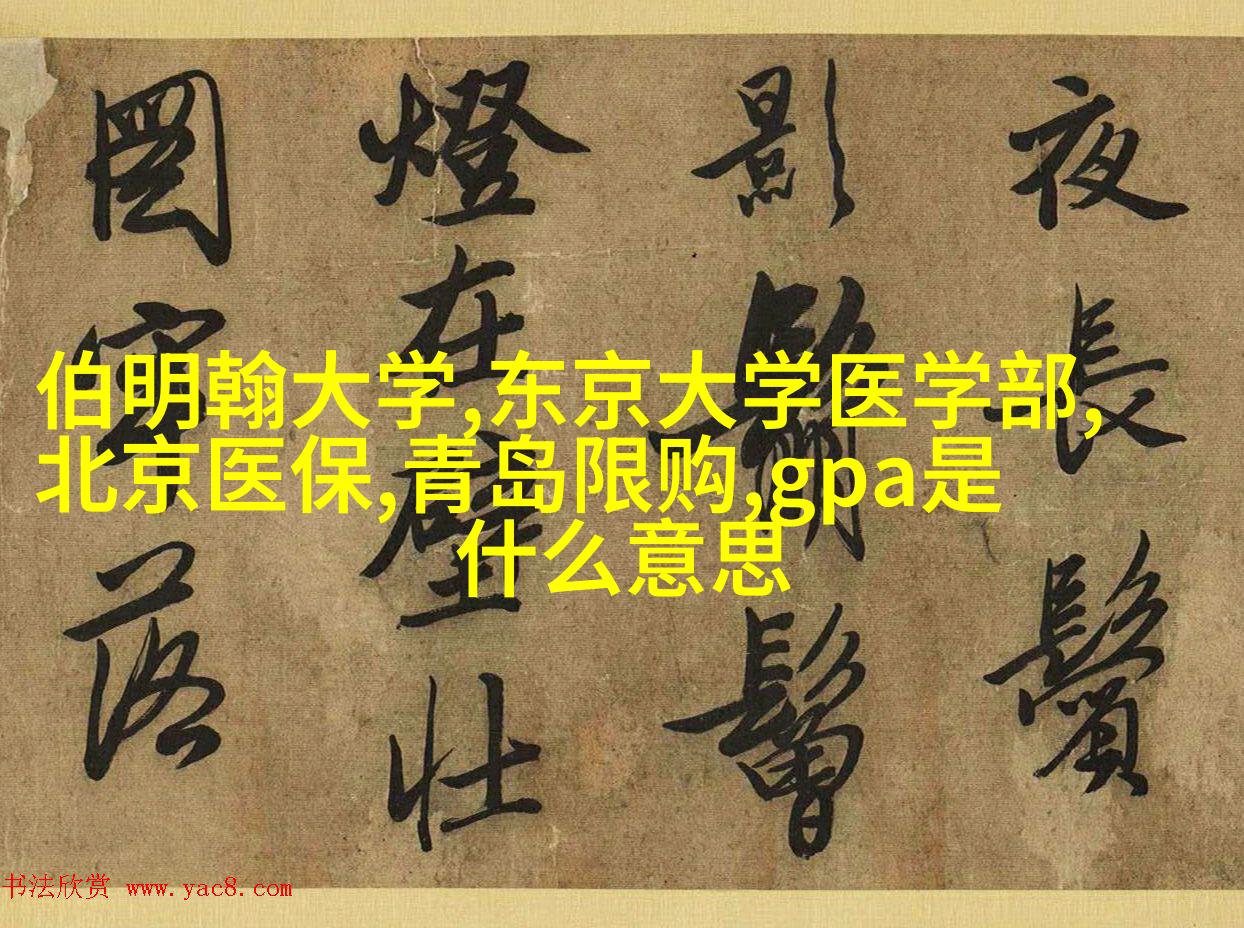 夜長鬢
影鬅鬙
燈在壁壯
圖落
伯明翰大学,东京大学医学部,
北京医保,青岛限购,gpa是
什么意思
书法欣赏 www.yac8.com